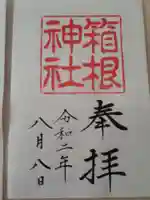 奉拝
箱根
神社
令和二年
八月八日